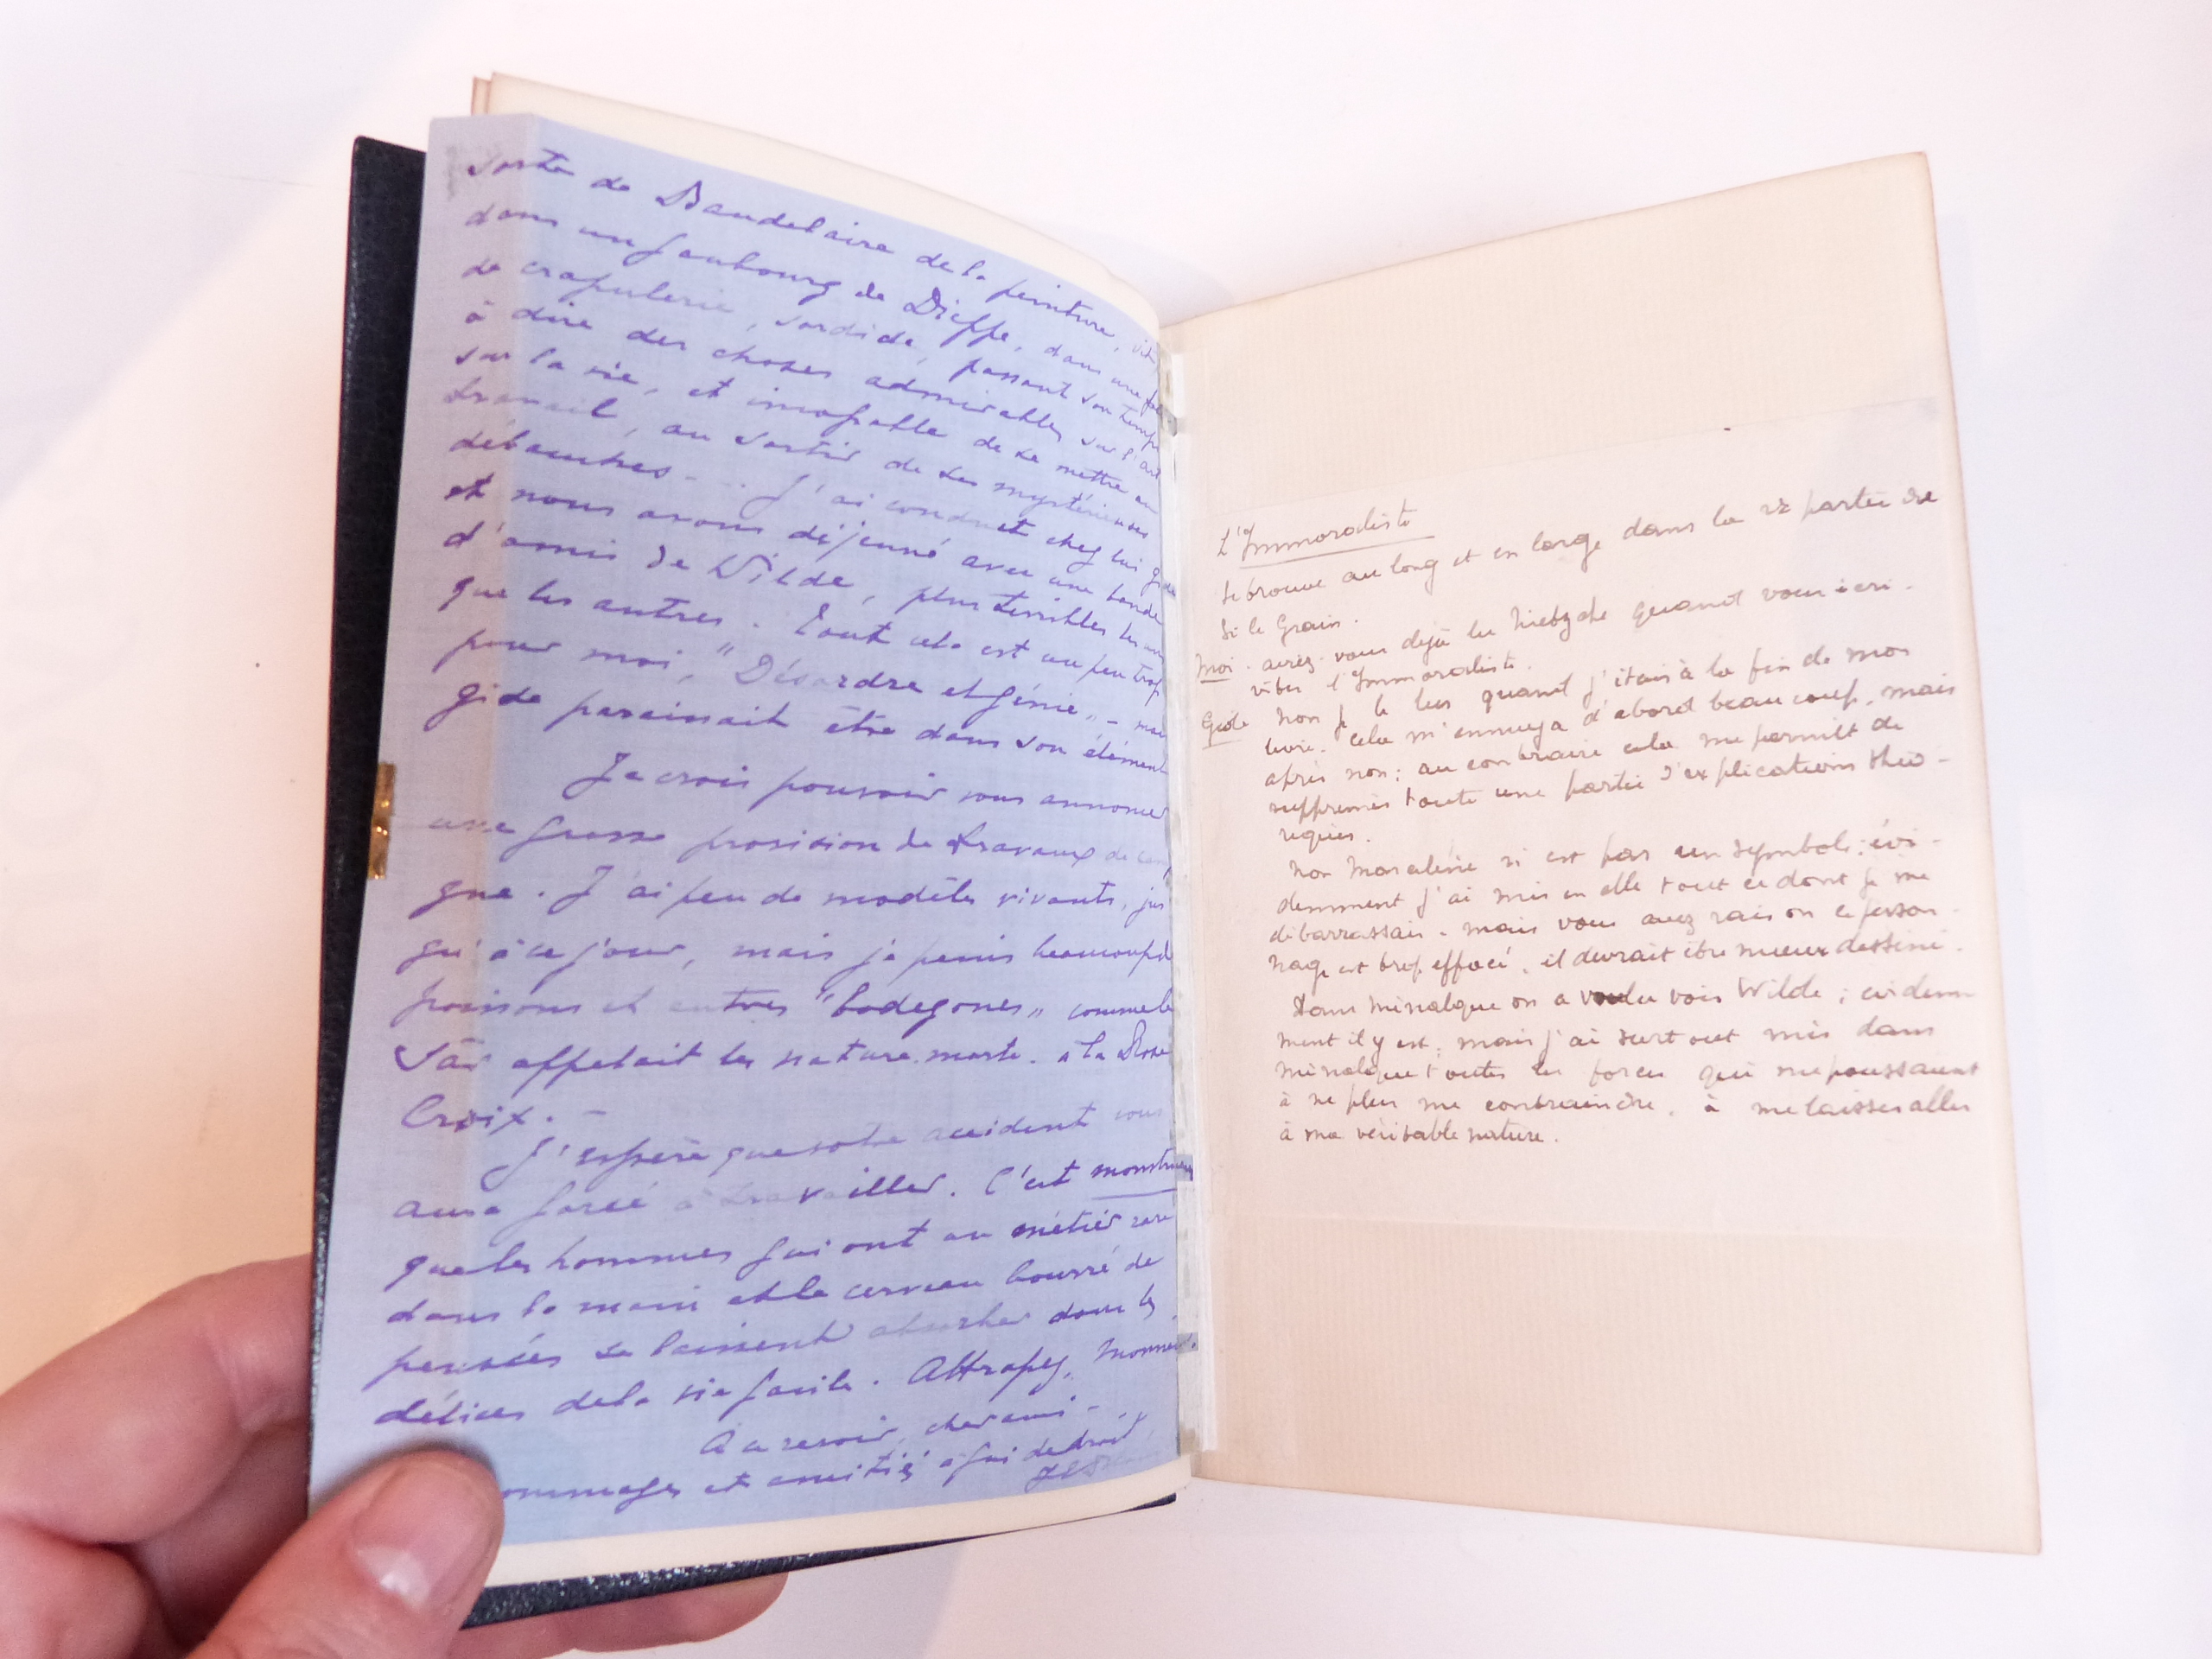 sorte de Baudelaire de la peinture,
dans un faubourg de Dieppe, dans une
de crapulerie, sordide, passant son temps
à dire des choses admirables sur l'art
sur la vie, et incapable de se mettre au
travail, au sortir de ses mystérieuses
débauches... J'ai conduit chez lui
et nous avons déjeuné avec une bande
d'amis de Wilde, plus terribles les uns
que les autres. Tout cela est un peu trop
pour moi, "Désordre et génie" - mais
gide paraissait être dans son élément
Je crois pouvoir vous annoncer
une grosse provision de travaux de
gne. J'ai peu de modèles vivants, jus
qu'à ce jour, mais je peins beaucoup de
poissons et autres "bodegones" comme le
Sâr appelait les nature morte. à la Rose
Croix. -
J'espère que votre accident vous
aura forcé à travailler. C'est monstrueux
que les hommes qui ont un métier rare
dans la main et le cerveau bourré de
pensées se laissent absorber dans les
délices de la vie facile. Attrapez,
Au revoir, cher ami -
ommages et amitiés à qui de droit,
L'Immoraliste
se trouve au long et en large dans la 2e partie de
Si le Grain.
Moi. aviez-vous déjà lu Nietzche quand vous écri-
vites l'Immoraliste.
Gide Non je le lus quand j'étais à la fin de mon
livre. Cela m'ennuya d'abord beaucoup, mais
après non; au contraire cela me permit de
supprimer toute une partie d'explications théo-
riques.
Non Marceline n'est pas un symbole: évi-
demment j'ai mis en elle tout ce dont je me
débarrassais. mais vous avez raison ce person-
nage est trop effacé, il devrait être mieux dessiné.
Dans Ménalque on a voulu voir Wilde; évidem
ment il y est; mais j'ai surtout mis dans
Ménalque toutes les forces qui me poussaient
à ne plus me contraindre, à me laisser aller
à ma véritable nature.